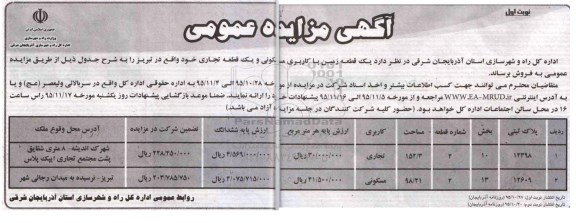 نوبت اول
آگهی مزایده عمومی
جمهوری اسلامی ایران
وزارت راه و شهرسازی
اداره کل راه و شهرسازی آذربایجان شرقی
اداره کل راه و شهرسازی استان آذربایجان شرقی در نظر دارد یک قطعه زمین با کاربری مسکونی و یک قطعه تجاری خود واقع در تبریز را به شرح جدول ذیل از طریق مزایده
عمومی به فروش برساند.
متقاضیان محترم می توانند جهت کسب اطلاعات بیشتر و اخذ اسناد شرکت در مزایده از مورخه ۹۵/۱۰/۲۸ الی ۹۵/۱۱/۴ به اداره حقوقی اداره کل واقع در سربالائی ولیعصر (عج) و یا
به آدرس اینترنتی WWW.EA-MRUD.ir مراجعه و از مورخه ۹۵/۱۱/۵ الی ۹۵/۱۱/۱۶ پیشنهادات خود را ارائه نمایند. ضمنا موعد بازگشایی پیشنهادات روز یکشنبه مورخه ۹۵/۱۱/۱۷ راس ساعت
۱۶ در محل سالن اجتماعات اداره کل خواهد بود. (حضور کلیه شرکت کنندگان در جلسه مزایده آزاد می باشد)
ParsNamadData
ردیف پلاک ثبتی بخش شماره قطعه مساحت کاربری ارزش پایه هر متر مربع ارزش پایه ششدانگ تضمین شرکت در مزایده آدرس محل وقوع ملک
۱ ۱۲۳۹۸ ۱۰ ۲ ۱۵۲/۳ تجاری ۳۰/۰۰۰/۰۰۰ ریال ۴/۵۶۹/۰۰۰/۰۰۰ ریال ۲۲۸/۴۵۰/۰۰۰ ریال شهرک اندیشه - ۸ متری شقایق پشت مجتمع تجاری ایپک پلاس
۲ ۱۲۶۰۹ ۱۳ ۴ ۹۸/۲۱ مسکونی ۴۱/۵۰۰/۰۰۰ ریال ۴/۰۷۵/۷۱۵/۰۰۰ ریال ۲۰۳/۷۸۵/۷۵۰ ریال تبریز - نرسیده به میدان رجائی شهر
تاریخ انتشار نوبت اول: ۹۵/۱۰/۲۸ (روزنامه آذربایجان)
روابط عمومی اداره کل راه و شهرسازی استان آذربایجان شرقی